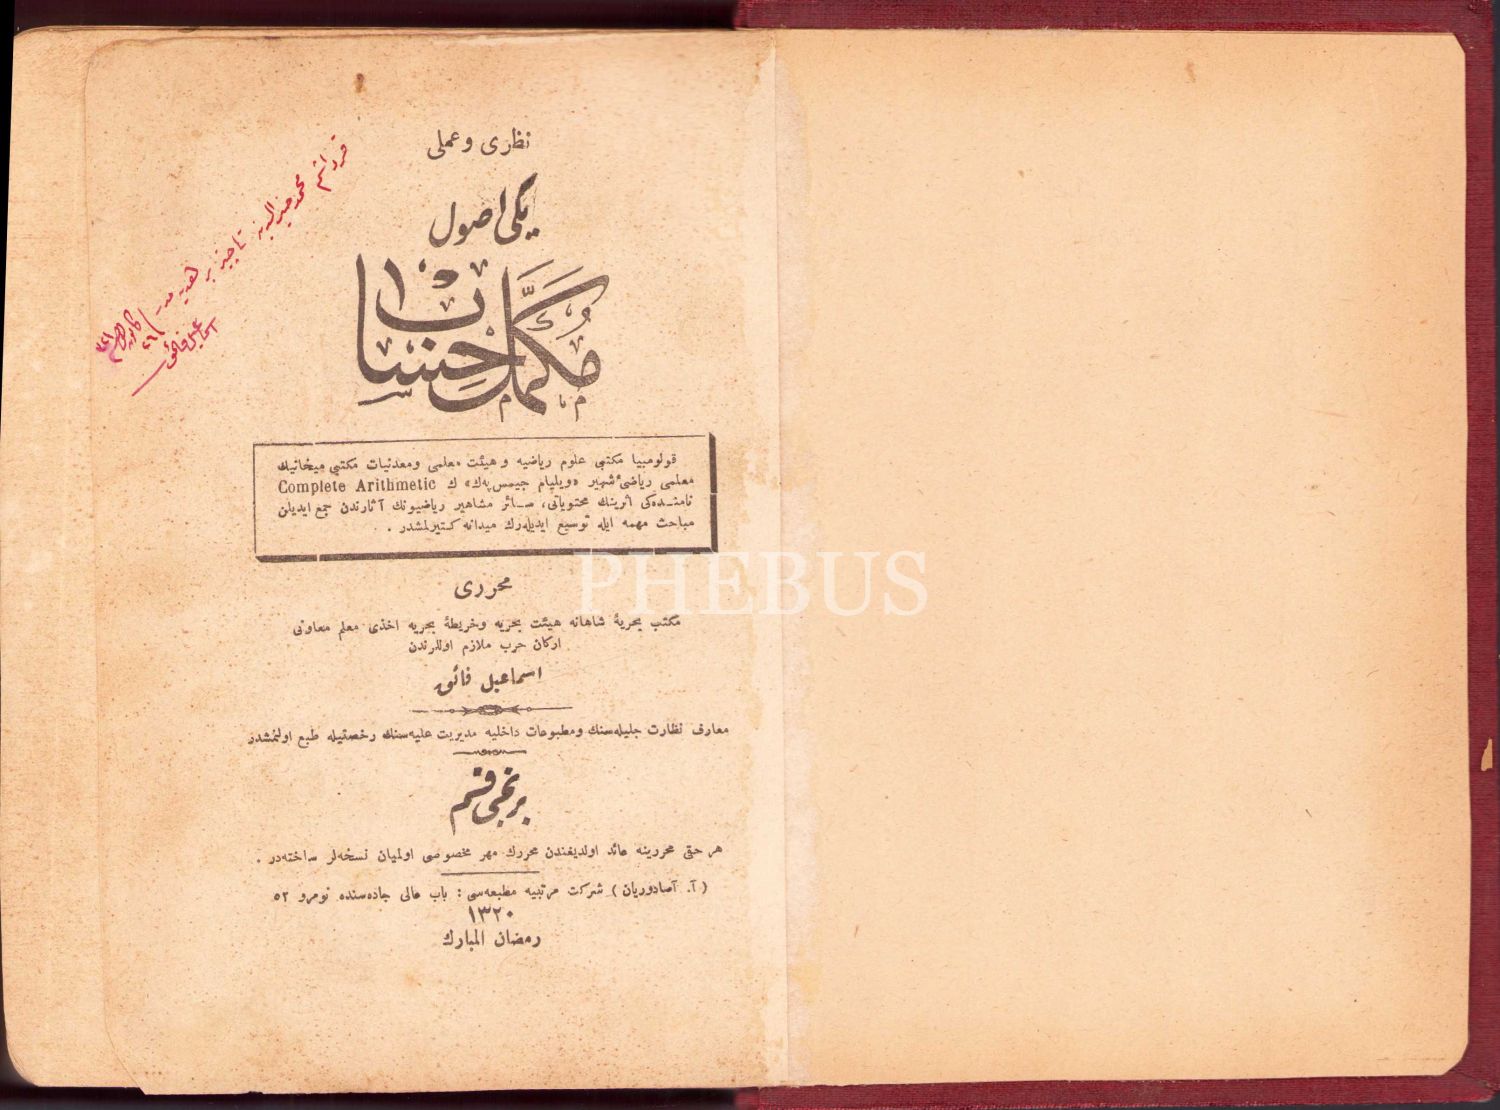 نظری و عملی
یکی اصول
مکمل حساب
قولومبیا مکتبی علوم ریاضیه و هیئت معلمی و معدنیات مکتبی میخانیك
معلمی ریاضیٔ شهیر «ویلیام جیمس پەك» ك Complete Arithmetic
نامنده‌کی اثرینك محتویاتی، سائر مشاهیر ریاضیونك آثارندن جمع ایدیلن
مباحث مهمه ایله توسیع ایدیله‌رك میدانه کتیرلمشدر .
محرری
مکتب بحریهٔ شاهانه هیئت بحریه و خریطهٔ بحریه اخذی معلم معاونی
ارکان حرب ملازم اوللرندن
اسماعیل فائق
معارف نظارت جلیله‌سنك و مطبوعات داخلیه مدیریت علیه‌سنك رخصتیله طبع اولنمشدر
برنجی قسم
هر حقی محررینه عائد اولدیغندن محررك مهر مخصوصی اولمیان نسخه‌لر ساخته‌در .
( آ. آصادوریان ) شرکت مرتبیه مطبعه‌سی : باب عالی جاده‌سنده نومرو ٥٢
١٣٢٠
رمضان المبارك
قرداشم محمد
اسماعیل فائق
PHEBUS